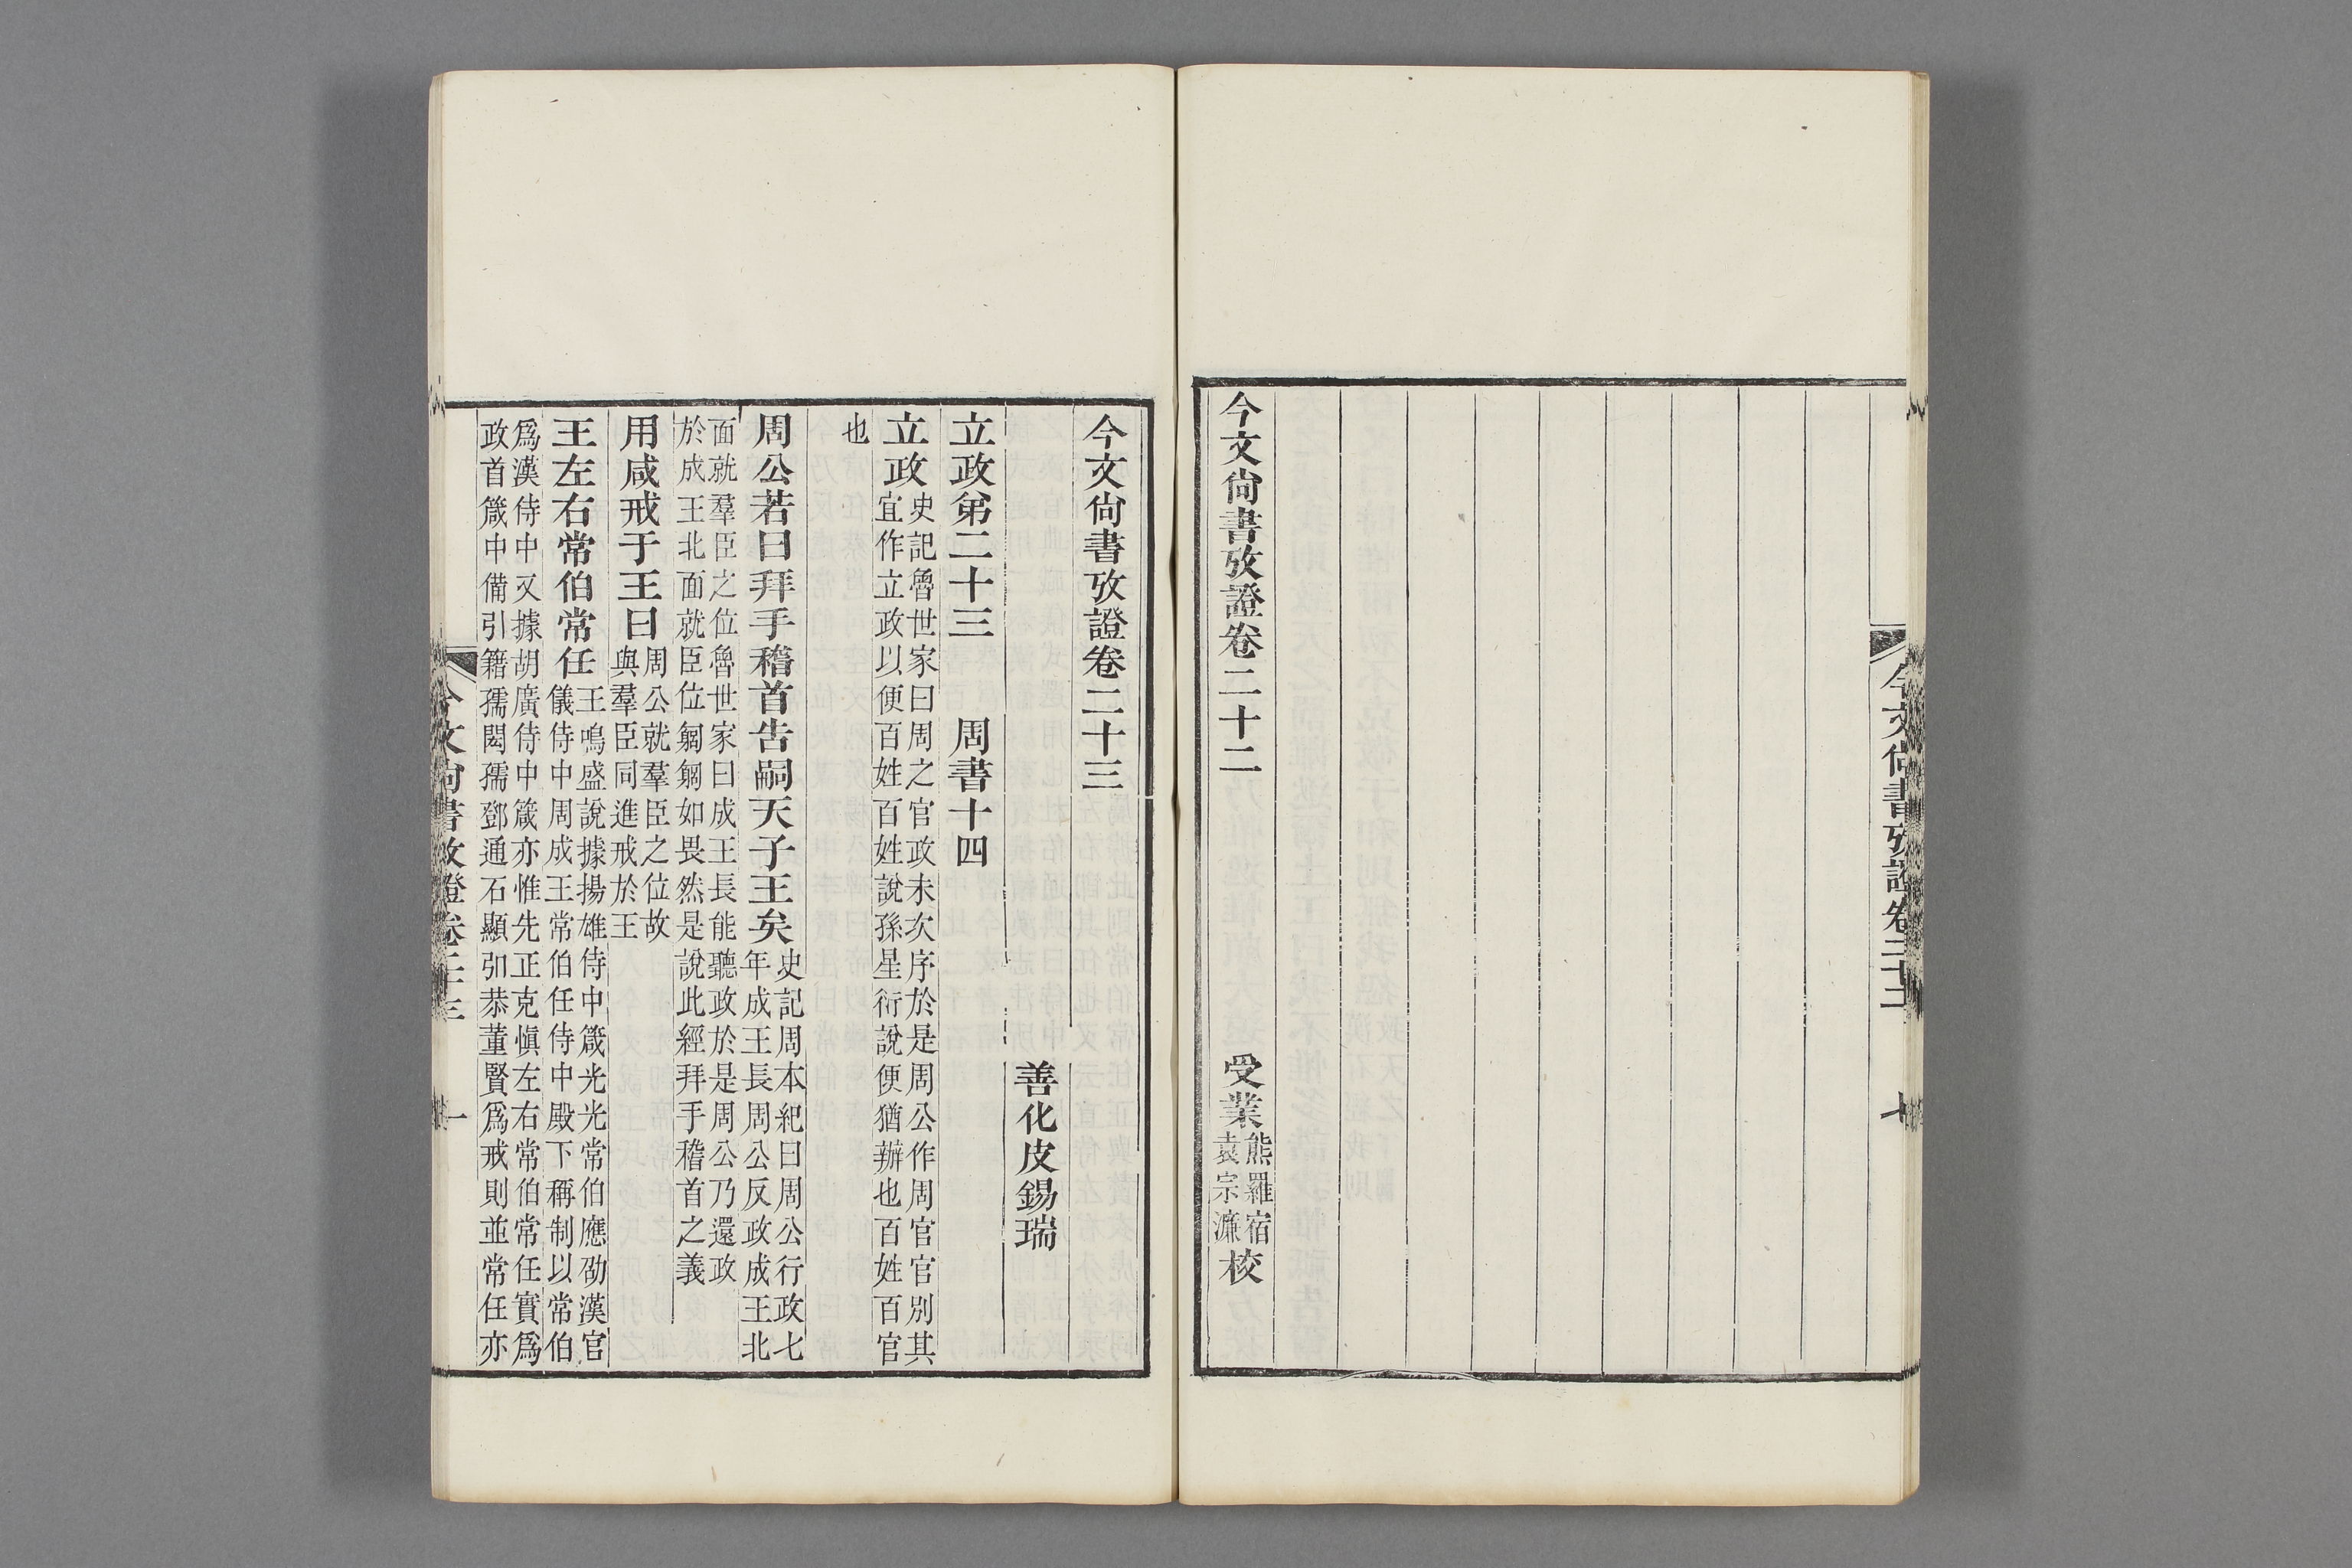 今文尙書攷證卷二十二 七
今文尙書攷證卷二十二 受業熊羅宿袁宗濂校
今文尙書攷證卷二十三
善化皮錫瑞
立政弟二十三 周書十四
立政史記魯世家曰周之官政未次序於是周公作周官官別其
宜作立政以便百姓百姓說孫星衍說便猶辦也百姓百官
也
周公若曰拜手稽首告嗣天子王矣史記周本紀曰周公行政七
年成王長周公反政成王北
面就羣臣之位魯世家曰成王長能聽政於是周公乃還政
於成王北面就臣位匔匔如畏然是說此經拜手稽首之義
用咸戒于王曰周公就羣臣之位故
與羣臣同進戒於王
王左右常伯常任王鳴盛說據揚雄侍中箴光光常伯應劭漢官
儀侍中周成王常伯任侍中殿下稱制以常伯
爲漢侍中又據胡廣侍中箴亦惟先正克愼左右常伯常任實爲
政首箴中備引籍孺閎孺鄧通石顯弘恭董賢爲戒則並常任亦
今文尙書攷證卷二十三 一